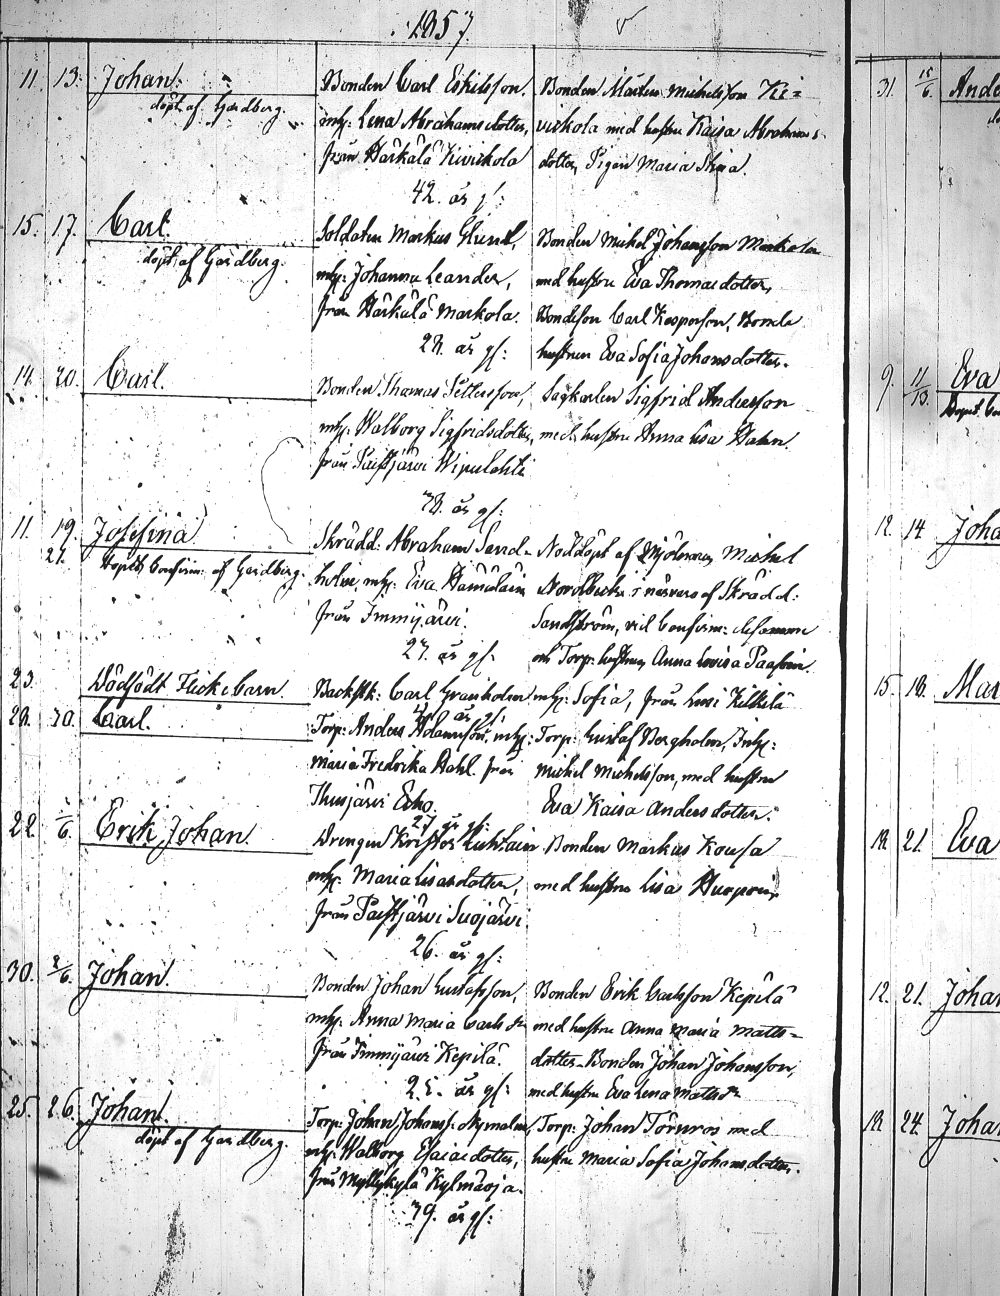 1857.
11. 13. Johan.
döpt af Gardberg.
Bonden Carl Eskilsson.
mh: Lena Abrahamsdotter,
från Härkälä Kiviskola
42. år gl:
Bonden Mårten Michelsson Ki=
viskola med hustru Kaisa Abrahams
dotter, Pigan Maria Stina.
15. 17. Carl.
döpt af Gardberg.
Soldaten Markus Glund,
mh: Johanna Leander,
från Härkälä Markola.
28. år gl:
Bonden Michel Johansson Markola
med hustru Eva Thomasdotter,
Bondeson Carl Kasperson,
hustrun Eva Sofia Johansdotter.
14. 20. Carl.
Bonden Thomas Pettersson,
mh: Walborg Sigfridsdotter,
från Paistjärvi
38. år gl:
Sagkarlen Sigfrid Andersson
med hustru Anna Lisa Hahn.
11. 19. Josefina
27. Döpt Confirm: af Gardberg.
Skrädd. Abraham Sand-
holm, mh: Eva Hämäläin
från Immjärvi.
27. år gl:
Nöddöpt af Mjölnaren Michel
i närvaro af Skrädd:
Sandström, vid Confirm:
och Torp: hustrun Anna Lovisa
23. Dödfödt Flickebarn.
Backstk: Carl Granholm mh: Sofia, från Lusi Kilkilä
år gl:
28. 30. Carl.
Torp: Anders Adamsson, mh:
Maria Fredrika Dahl. från
Thusjärvi Erho.
27 år gl:
Torp: Gustaf Bergholm, Inh:
Michel Michelsson, med hustru
Eva Kaisa Andersdotter.
22. 1/6. Erik Johan.
Drengen Krister Luhtain
mh: Maria Lisasdotter,
från Paistjärvi Suojärvi
26. år gl:
Bonden Markus Kousa
med hustru Lisa
30. 2/6. Johan.
Bonden Johan Gustafsson,
mh: Anna Maria Carls dr
från Immjärvi Kepilä.
25. år gl:
Bonden Erik Carlsson Kepilä
med hustru Anna Maria Matts=
dotter. Bonden Johan Johansson,
med hustru Eva Lena Mattsdr
25. 26. Johan.
döpt af Gardberg.
Torp: Johan Johanss: Nymalm,
mh: Walborg Esaiasdotter,
från Myllykylä Kylmäoja.
39. år gl:
Torp: Johan Törnros med
hustru Maria Sofia Johansdotter.
31. 15/6.
9. 11/13. Eva
12. 14
15. 18.
18. 21. Eva
12. 21.
18. 24.